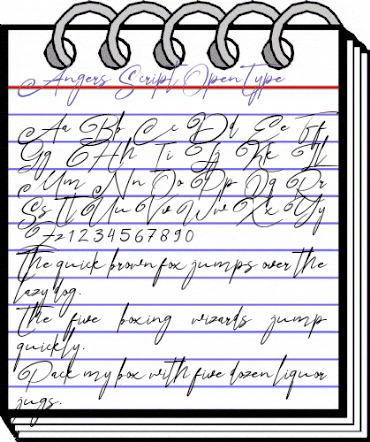 Angers Script OpenType
Aa Bb Cc Dd Ee Ff
Gg Hh Ii Jj Kk Ll
Mm Nn Oo Pp Qq Rr
Ss Tt Uu Vv Ww Xx Yy
Zz 1 2 3 4 5 6 7 8 9 0
The quick brown fox jumps over the
lazy dog.
The five boxing wizards jump
quickly.
Pack my box with five dozen liquor
jugs.